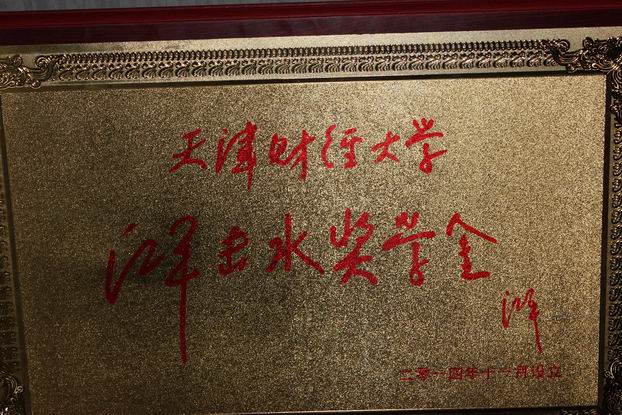 天津财经大学
击水奖学金
二零一四年十一月设立